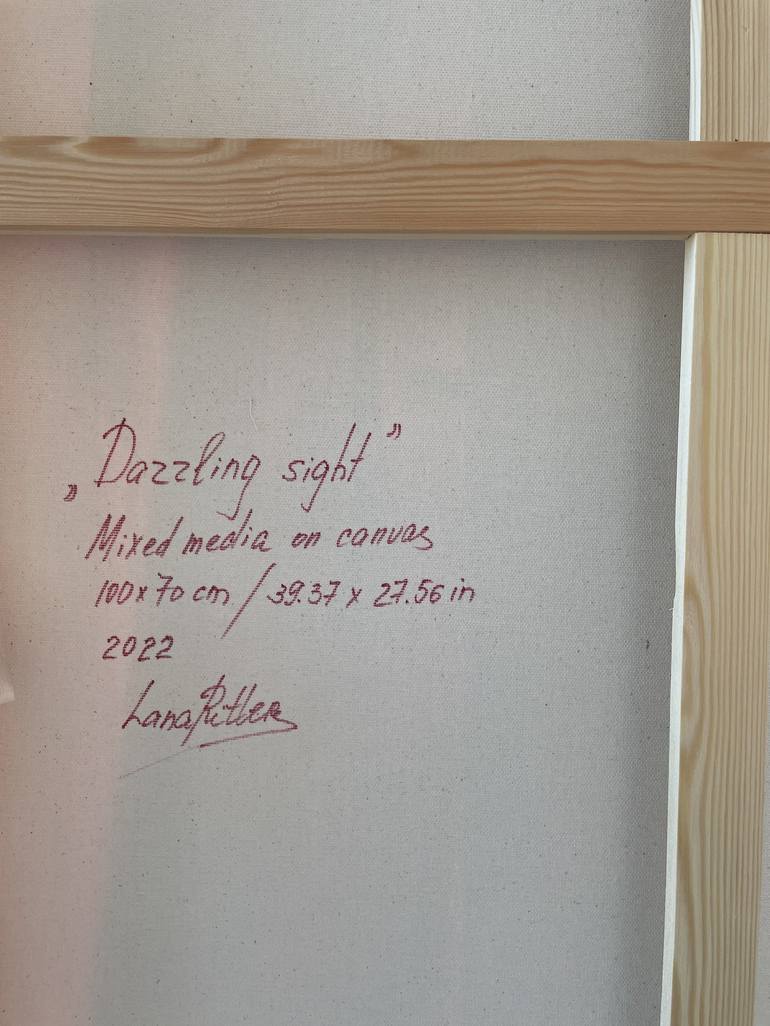 „Dazzling sight”
Mixed media on canvas
100x70 cm / 39.37 x 27.56 in
2022
Lana Ritter